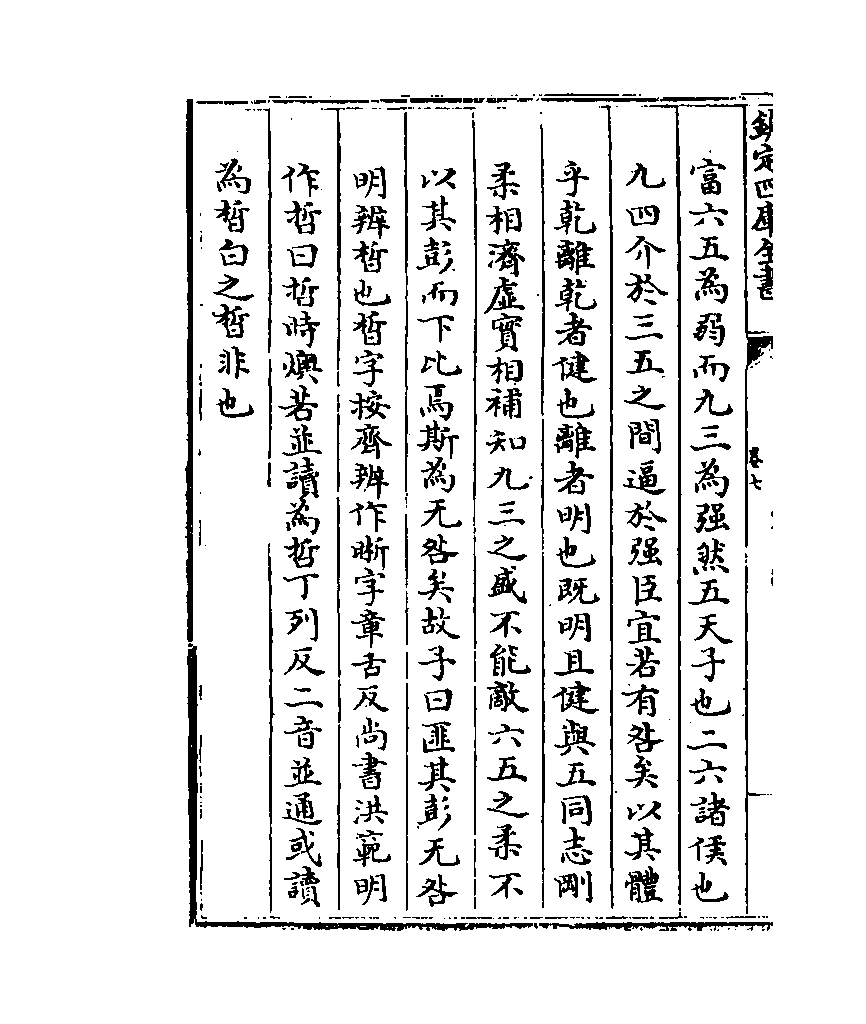 欽定四庫全書
卷七
富六五為弱而九三為强然五天子也二六諸侯也
九四介於三五之間逼於强臣宜若有咎矣以其體
乎乾離乾者健也離者明也既明且健與五同志剛
柔相濟虛實相補知九三之盛不能敵六五之柔不
以其彭而下比焉斯為无咎矣故子曰匪其彭无咎
明辨晢也晢字按齊辨作晣字章舌反尚書洪範明
作哲曰哲時燠若並讀為哲丁列反二音並通或讀
為晳白之晳非也